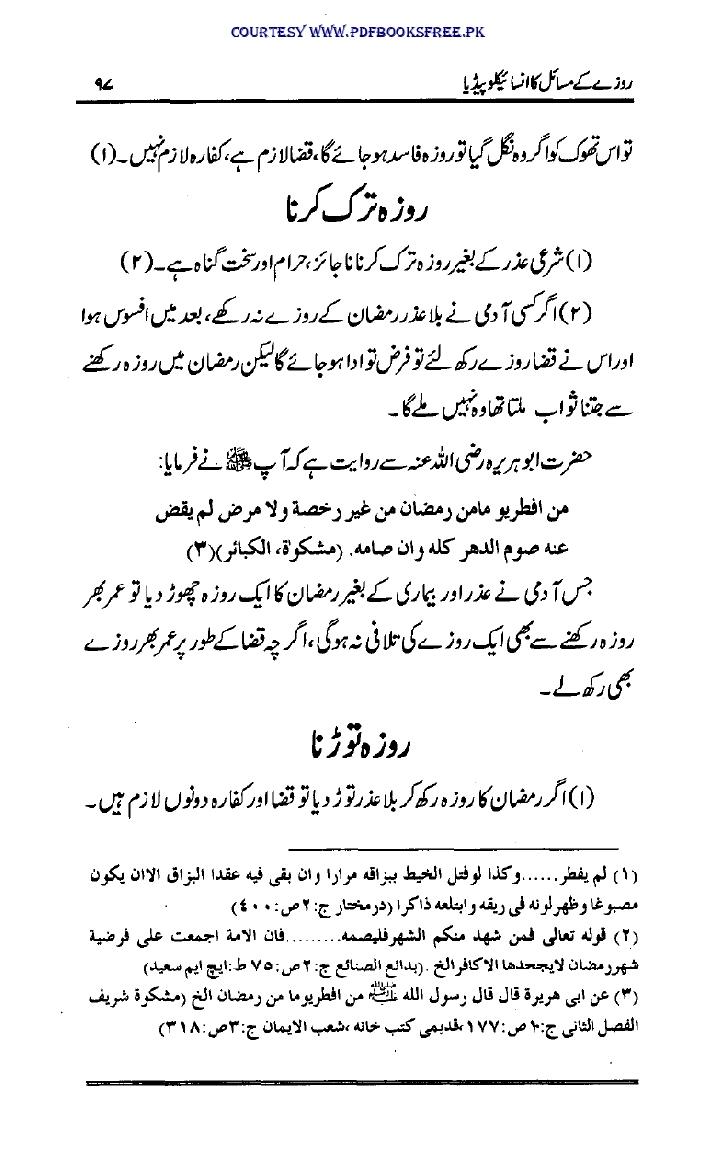 COURTESY WWW.PDFBOOKSFREE.PK
روزے کے مسائل کا انسائیکلوپیڈیا ۹۷
تو اس تھوک کو اگر وہ نگل گیا تو روزہ فاسد ہو جائے گا، قضا لازم ہے، کفارہ لازم نہیں۔ (۱)
روزہ ترک کرنا
(۱) شرعی عذر کے بغیر روزہ ترک کرنا ناجائز، حرام اور سخت گناہ ہے۔ (۲)
(۲) اگر کسی آدمی نے بلا عذر رمضان کے روزے نہ رکھے، بعد میں افسوس ہوا
اور اس نے قضا روزے رکھ لئے تو فرض تو ادا ہو جائے گا لیکن رمضان میں روزہ رکھنے
سے جتنا ثواب ملتا تھا وہ نہیں ملے گا۔
حضرت ابو ہریرہ رضی اللہ عنہ سے روایت ہے کہ آپ ﷺ نے فرمایا:
من افطر يو مامن رمضان من غير رخصة ولا مرض لم يقض
عنه صوم الدهر كله وان صامه. (مشكوٰة، الكبائر) (۳)
جس آدمی نے عذر اور بیماری کے بغیر رمضان کا ایک روزہ چھوڑ دیا تو عمر بھر
روزہ رکھنے سے بھی ایک روزے کی تلافی نہ ہوگی، اگر چہ قضا کے طور پر عمر بھر روزے
بھی رکھ لے۔
روزہ توڑنا
(۱) اگر رمضان کا روزہ رکھ کر بلا عذر توڑ دیا تو قضا اور کفارہ دونوں لازم ہیں۔
(۱) لم يفطر......وكذا لو فتل الخيط ببزاقه مرارا وان بقى فيه عقدا البزاق الاان يكون
مصبوغا وظهر لونه فى ريقه و ابتلعه ذاكرا (درمختار ج: ۲ ص: ۴۰۰)
(۲) قوله تعالى فمن شهد منكم الشهر فليصمه.........فان الامة اجمعت على فرضية
شهر رمضان لايجحدها الا كافر الخ . (بدائع الصنائع ج: ۲ ص: ۷۵ ط: ايچ ايم سعيد)
(۳) عن ابى هريرة قال قال رسول الله ﷺ من افطر يوما من رمضان الخ (مشكوة شريف
الفصل الثانى ج: ۱ ص: ۱۷۷، قديمى كتب خانه، شعب الايمان ج: ۳ ص: ۳۱۸)